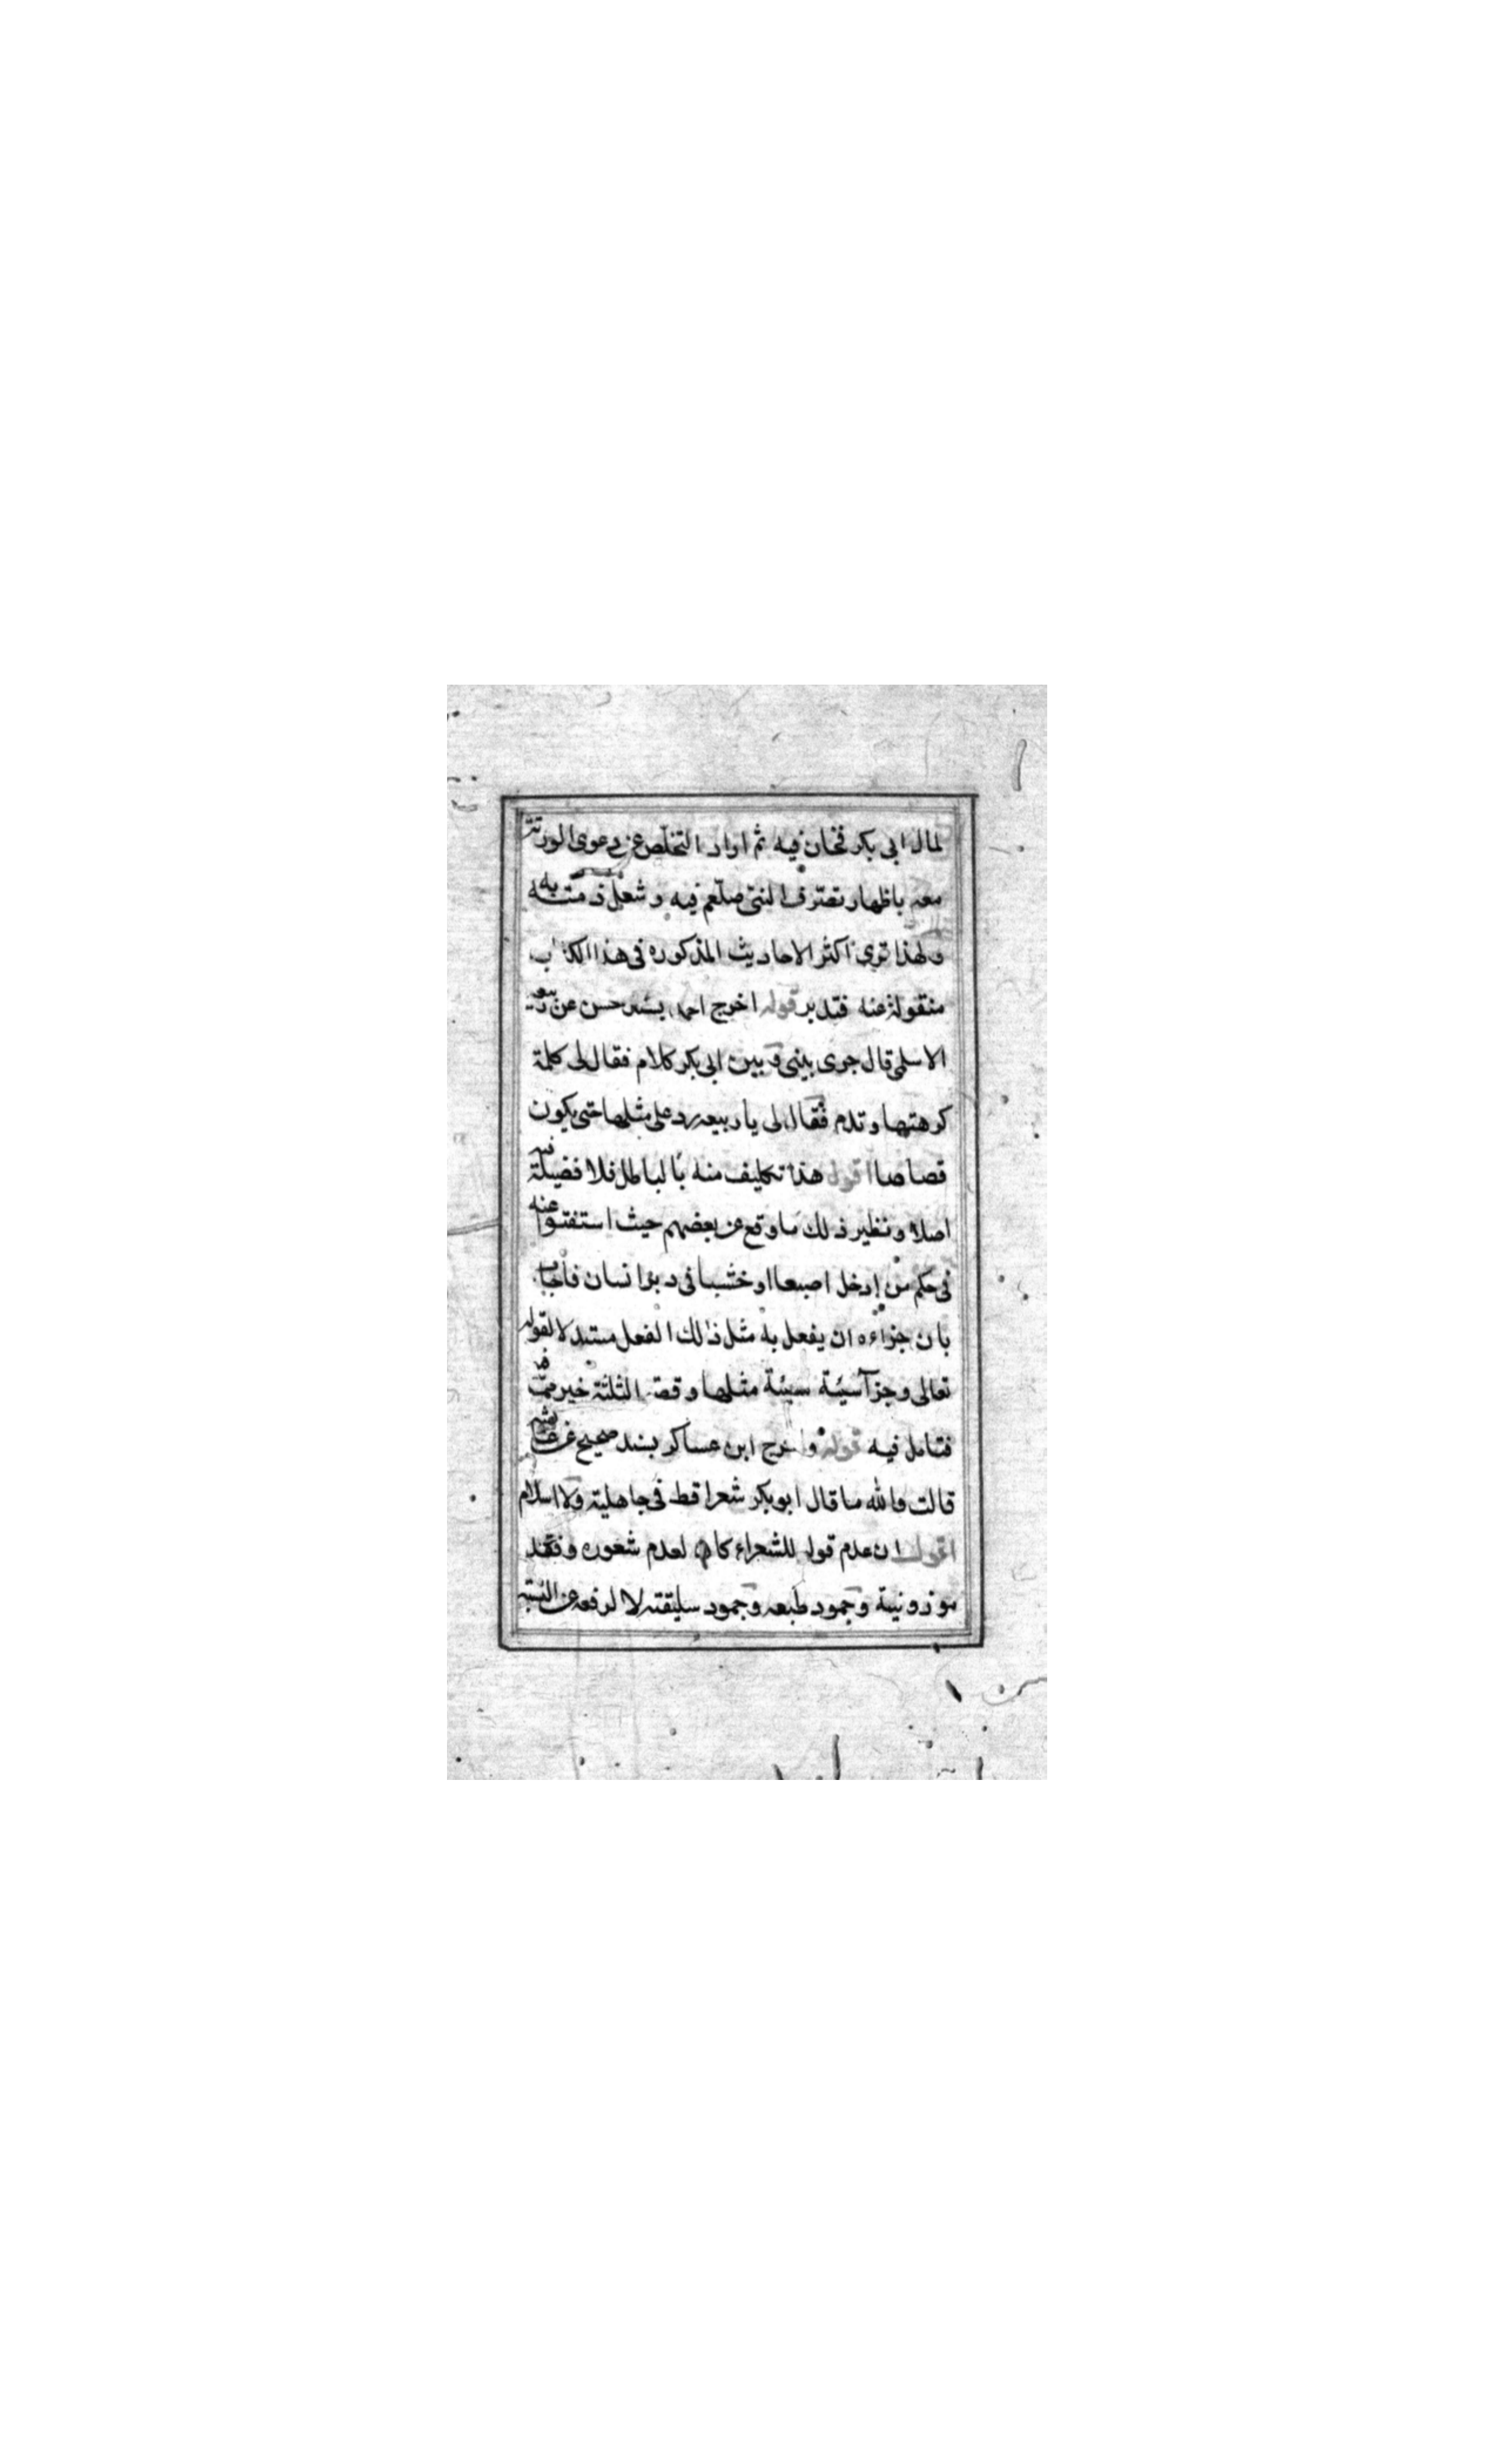 لمال ابی بکر فخان فیه ثم اراد التخلص عن دعوی الورثة
معه باظهار تصرف النبی صلعم فیه و شغل ذمته به
ولهذا تری اکثر الاحادیث المذکوره فی هذا الکتاب
منقولة عنه فتدبر قوله اخرج احمد بسند حسن عن ربیعه
الاسلمی قال جری بینی و بین ابی بکر کلام فقال لی کلمة
کرهتها و ندم فقال لی یا ربیعه رد علی مثلها حتی یکون
قصاصا اقول هذا تکلیف منه بالباطل فلا فضیلة فیه
اصلا و نظیر ذلك ما وقع عن بعضهم حیث استفتوا عنه
فی حکم من ادخل اصبعا او خشبا فی دبر انسان فاجاب
بان جزاءه ان یفعل به مثل ذلك الفعل مستدلا لقوله
تعالی و جزآ سیئة سیئة مثلها و قصة الثلثة خیر
فتامل فیه قوله و اخرج ابن عساکر بسند صحیح عن عایشه
قالت والله ما قال ابو بکر شعرا قط فی جاهلیة ولا اسلام
اقول ان عدم قوله للشعراء کان لعدم شعوره و فقد
موزونیة و جمود طبعه و جمود سلیقته لا لرفعه عن النسبة